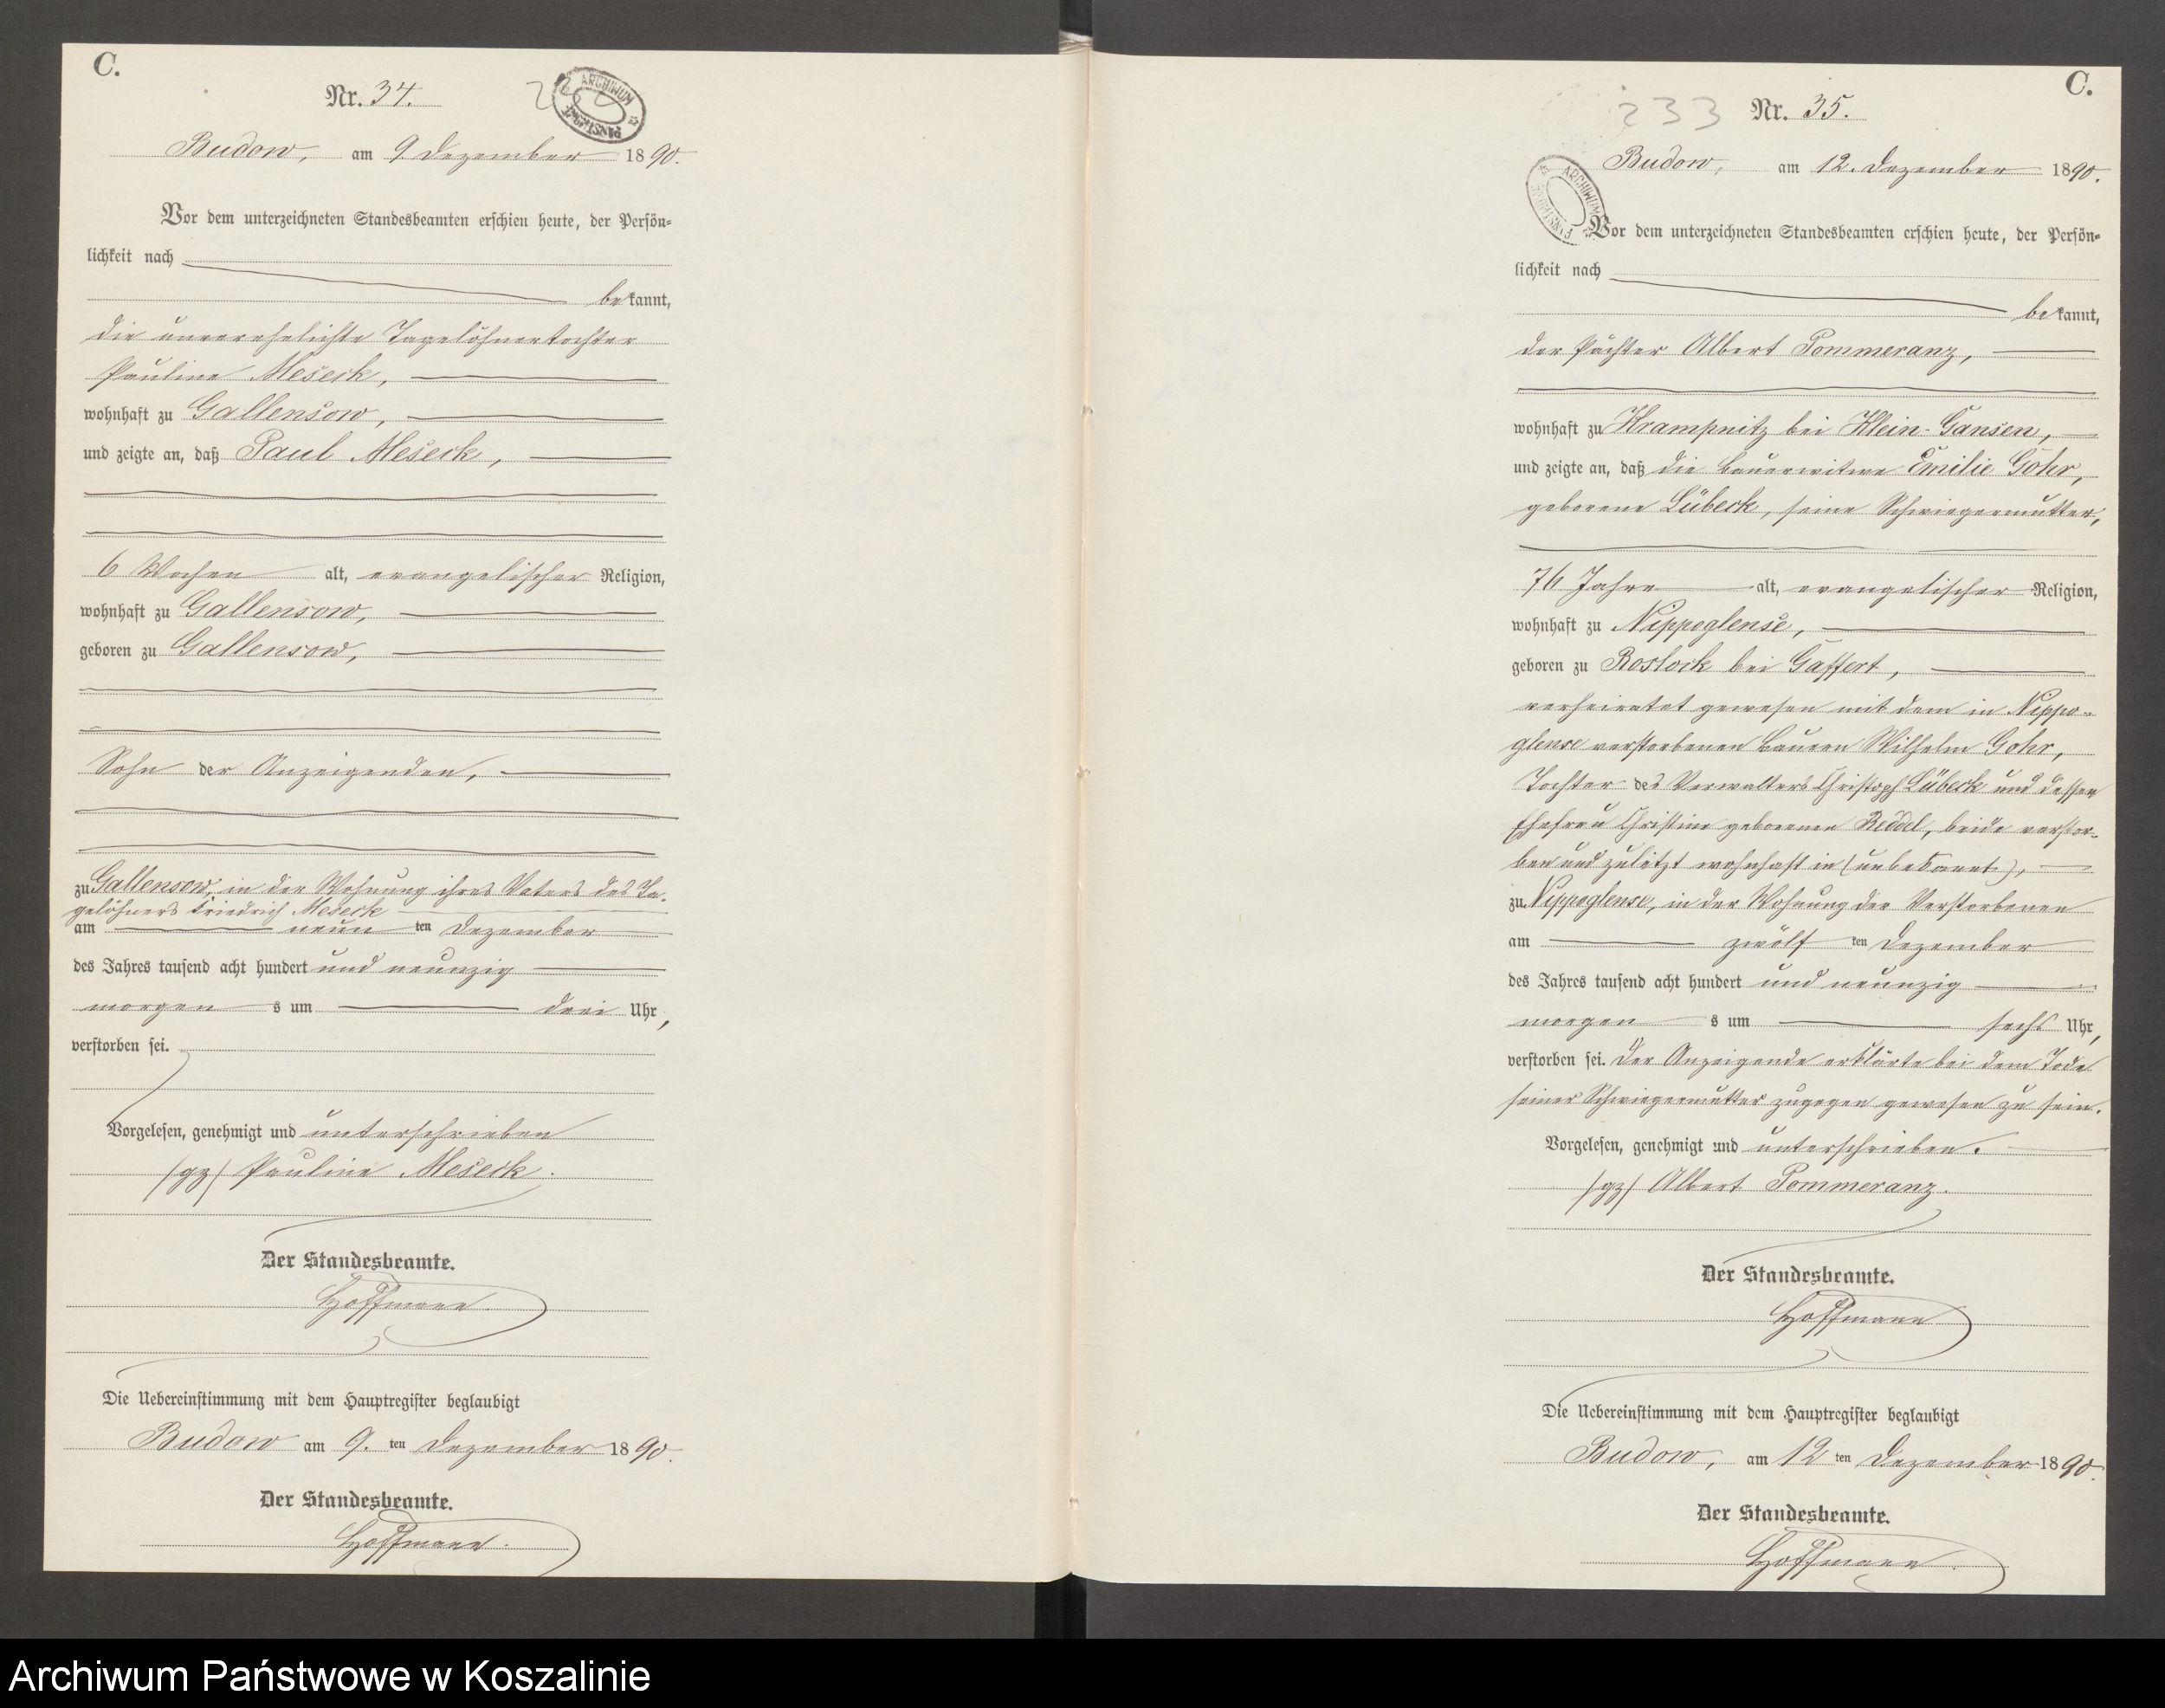 C.
Nr. 34.
ARCHIWUM
Budow, am 9. Dezember 1890.
Vor dem unterzeichneten Standesbeamten erschien heute, der Persön=
lichkeit nach
bekannt,
die unverehelichte Tagelöhnertochter
Pauline Meseck,
wohnhaft zu Gallensow,
und zeigte an, daß Paul Meseck,
6 Wochen alt, evangelischer Religion,
wohnhaft zu Gallensow,
geboren zu Gallensow,
Sohn der Anzeigenden,
zu Gallensow, in der Wohnung ihres Vaters des Ta-
gelöhners Friedrich Meseck
am neun ten Dezember
des Jahres tausend acht hundert und neunzig
morgen s um drei Uhr,
verstorben sei.
Vorgelesen, genehmigt und unterschrieben
/gz/ Pauline Meseck.
Der Standesbeamte.
Hoffmann.
Die Uebereinstimmung mit dem Hauptregister beglaubigt
Budow am 9. ten Dezember 1890.
Der Standesbeamte.
Hoffmann.
C.
233 Nr. 35.
Budow, am 12. Dezember 1890.
ARCHIWUM
Vor dem unterzeichneten Standesbeamten erschien heute, der Persön=
lichkeit nach
bekannt,
der Pächter Albert Pommeranz,
wohnhaft zu Krampnitz bei Klein-Gansen,
und zeigte an, daß die Bauerwitwe Emilie Gohr,
geborene Lübeck, seine Schwiegermutter,
76 Jahre alt, evangelischer Religion,
wohnhaft zu Nippoglense,
geboren zu Rostock bei Gaffert,
verheiratet gewesen mit dem in Nippo-
glense verstorbenen Bauren Wilhelm Gohr,
Tochter des Verwalters Christoph Lübeck und dessen
Ehefrau Christine geborenen Reddel, beide verstor-
ben und zuletzt wohnhaft in (unbekannt),
zu Nippoglense, in der Wohnung der Verstorbenen
am zwölf ten Dezember
des Jahres tausend acht hundert und neunzig
morgen s um sechs Uhr,
verstorben sei. Der Anzeigende erklärte bei dem Tode
seiner Schwiegermutter zugegen gewesen zu sein.
Vorgelesen, genehmigt und unterschrieben.
/gz/ Albert Pommeranz.
Der Standesbeamte.
Hoffmann
Die Uebereinstimmung mit dem Hauptregister beglaubigt
Budow, am 12 ten Dezember 1890.
Der Standesbeamte.
Hoffmann.
Archiwum Państwowe w Koszalinie